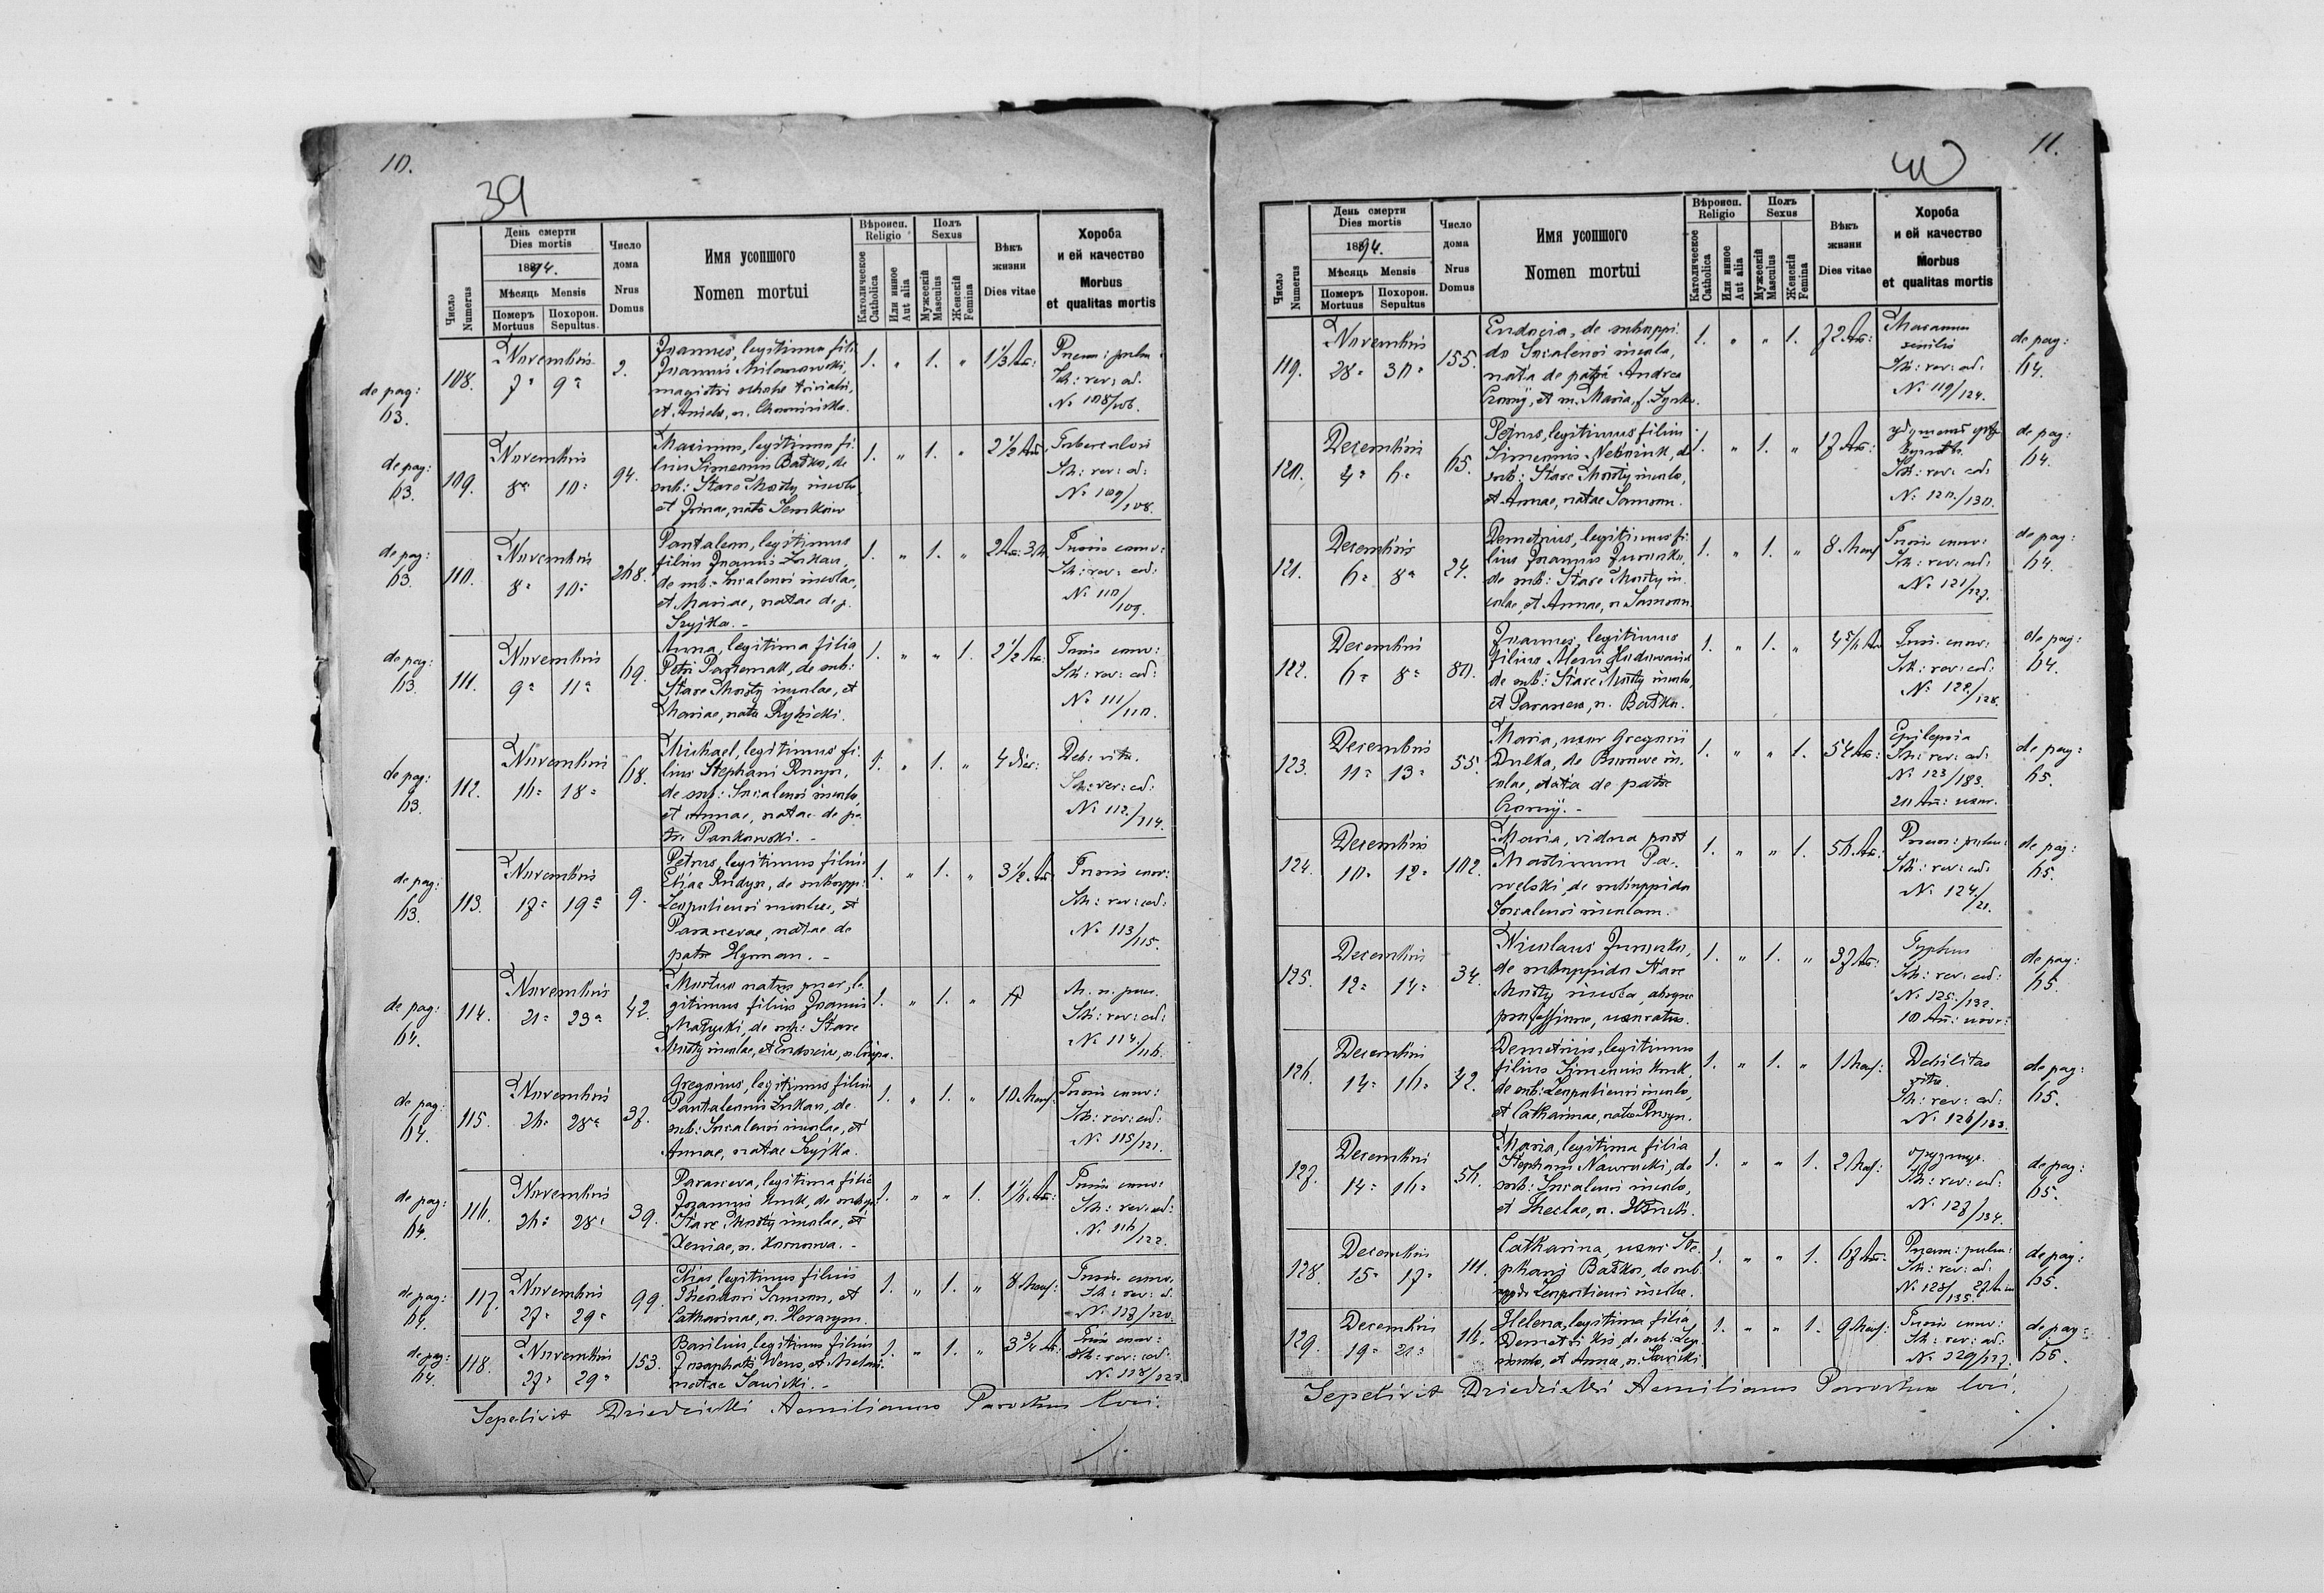 10.
39
Число
Numerus
День смерти
Dies mortis
1894.
Мѣсяць Mensis
Померъ
Mortuus
Похорон.
Sepultus.
Число
дома
Nrus
Domus
Имя усопшого
Nomen mortui
Вѣроисп.
Religio
Католическое
Catholica
Или инное
Aut alia
Полъ
Sexus
Мужескій
Masculus
Женскій
Femina
Вѣкъ
жизни
Dies vitae
Хороба
и ей качество
Morbus
et qualitas mortis
de pag:
63.
108.
Novembris
7 9
2.
Joannes, legitimus fili
Joannis
magistri scholae trivialis,
et Anielae, n.
1. " 1. "
1 1/3 An:
Pneum: pulm:
Sch: rev: ad:
№ 108/106.
de pag:
63.
109.
Novembris
8 10
94.
Maximus, legitimus fi-
lius Simeonis Baćko, de
sub: Stare Mosty incolae
et Irinae, nata Senkow
1. " 1. "
2 1/2 An:
Tuberculosis
Sch: rev: ad:
№ 109/108.
de pag:
63.
110.
Novembris
8 10
268.
Pantaleon, legitimus
filius Joannis Lukan,
de sub: Socalensi incolae,
et Mariae, natae de p.
Szyjka. -
1. " 1. "
2 An: 3 M.
Tussis conv:
Sch: rev: ad:
№ 110/109.
de pag:
63.
111.
Novembris
9 11
69.
Anna, legitima filia
Petri Pasternak, de sub:
Stare Mosty incolae, et
Mariae, nata Rybicki.
1. " " 1.
2 1/2 An:
Tussis conv:
Sch: rev: ad:
№ 111/110.
de pag:
63.
112.
Novembris
16 18
68.
Michael, legitimus fi-
lius Stephani
de sub: Socalensi incolae,
et Annae, natae de pa-
tre Pankowski. -
1. " 1. "
4 dier:
Deb: vitae.
Sch: rev: ad:
№ 112/114.
de pag:
63.
113.
Novembris
17 19
9.
Petrus, legitimus filius
Eliae Rudyk, de suboppi:
Leopoliensi incolae, et
Parascevae, natae de
patre Hyman. -
1. " 1. "
3 1/2 An:
Tussis conv:
Sch: rev: ad:
№ 113/115.
de pag:
64.
114.
Novembris
21 23
42.
Mortuus natus puer, le-
gitimus filius Joannis
de sub: Stare
Mosty incolae, et Eudociae, n.
1. " 1. "
M. n. puer.
Sch: rev: ad:
№ 114/116.
de pag:
64.
115.
Novembris
26 28
37.
Gregorius, legitimus filius
Pantaleonis Lukan, de
sub: Socalensi incolae, et
Annae, natae Szyjka.
1. " 1. "
10 Mens:
Tussis conv:
Sch: rev: ad:
№ 115/121.
de pag:
64.
116.
Novembris
26 28
39.
Parasceva, legitima filia
Joannis Huk, de subop:
Stare Mosty incolae, et
Xeniae, n.
1. " " 1.
1 1/2 An:
Tussis conv:
Sch: rev: ad:
№ 116/122.
de pag:
64.
117.
Novembris
27 29
99.
Elias, legitimus filius
Theodori Samson, et
Catharinae, n. Harasym.
1. " 1. "
8 Mens:
Tussis conv.
Sch: rev: ad
№ 117/120.
de pag:
64.
118.
Novembris
27 29
153.
Basilius, legitimus filius
Josaphati Wens, et
natae Sawicki. -
1. " 1. "
3 3/4 An:
Tussis conv:
Sch: rev: ad:
№ 118/123.
Sepelivit Dziedzicki Aemilianus Parochus loci.
11.
40
Число
Numerus
День смерти
Dies mortis
1894.
Мѣсяць Mensis
Померъ
Mortuus
Похорон.
Sepultus
Число
дома
Nrus
Domus
Имя усопшого
Nomen mortui
Вѣроисп.
Religio
Католическое
Catholica
Или инное
Aut alia
Полъ
Sexus
Мужескій
Masculus
Женскій
Femina
Вѣкъ
жизни
Dies vitae
Хороба
и ей качество
Morbus
et qualitas mortis
119.
Novembris
28 30
155.
Eudocia, de suboppi-
do Socalensi incola,
nata de patre Andrea
Czorny, et m. Maria,
1. " " 1.
72 An:
Marasmus
senilis
Sch: rev: ad:
№ 119/124.
de pag:
64.
120.
Decembris
4 6
65.
Petrus, legitimus filius
Simeonis de
sub: Stare Mosty incolae,
et Annae, natae Samson.
1. " 1. "
17 An:
Sch: rev: ad:
№ 120/130.
de pag:
64.
121.
Decembris
6 8
24.
Demetrius, legitimus fi-
lius Joannis Jurczko,
de sub: Stare Mosty in-
colae, et Annae, n. Samson.
1. " 1. "
8 Mens
Tussis conv:
Sch: rev: ad:
№ 121/127.
de pag:
64.
122.
Decembris
6 8
80.
Joannes, legitimus
filius Alexii
de sub: Stare Mosty incolae,
et Parasceva, n. Baćko.
1. " 1. "
4 5/6 An
Tuss. conv:
Sch: rev: ad:
№ 122/128.
de pag:
64.
123.
Decembris
11 13
55.
Maria, uxor Gregorii
Dulka, de in-
colae, nata de patre
Czorny. -
1. " " 1.
54 An:
Epilepsia
Sch: rev: ad:
№ 123/183.
20 An: uxor.
de pag:
65.
124.
Decembris
10 12
102.
Maria, vidua post
Martinum Pa-
welski, de suboppido
Socalensi incolam.
1. " " 1.
56 An:
Pneum: pulm:
Sch: rev: ad:
№ 124/21.
de pag:
65.
125.
Decembris
12 14
34.
Nicolaus Jurczko,
de suboppido Stare
Mosty incola, absque
professione, uxoratus.
1. " 1. "
37 An:
Typhus
Sch: rev: ad:
№ 125/132.
10 An: uxor:
de pag:
65.
126.
Decembris
14 16
42.
Demetrius, legitimus
filius Simeonis Huk,
de sub: Leopoliensi incolae,
et Catharinae, natae
1. " 1. "
1 Mens:
Debilitas
vitae.
Sch: rev: ad:
№ 126/133.
de pag:
65.
127.
Decembris
14 16
56.
Maria, legitima filia
Stephani Nawrocki, de
sub: Socalensi incolae,
et Theclae, n.
1. " " 1.
2 Mens:
Sch: rev: ad:
№ 127/134.
de pag:
65.
128.
Decembris
15 17
111.
Catharina, uxor Ste-
phani Baćko, de sub-
oppido Leopoliensi incolae.
1. " " 1.
67 An:
Pneum: pulm:
Sch: rev: ad:
№ 128/135.
de pag:
65.
129.
Decembris
19 21
116.
Helena, legitima filia
Demetri Kis, de sub: Leop.
incolae, et Anna, n. Sawicki
1. " " 1.
9 Mens:
Tussis conv:
Sch: rev: ad:
№ 129/137.
de pag:
65.
Sepelivit Dziedzicki Aemilianus Parochus loci.